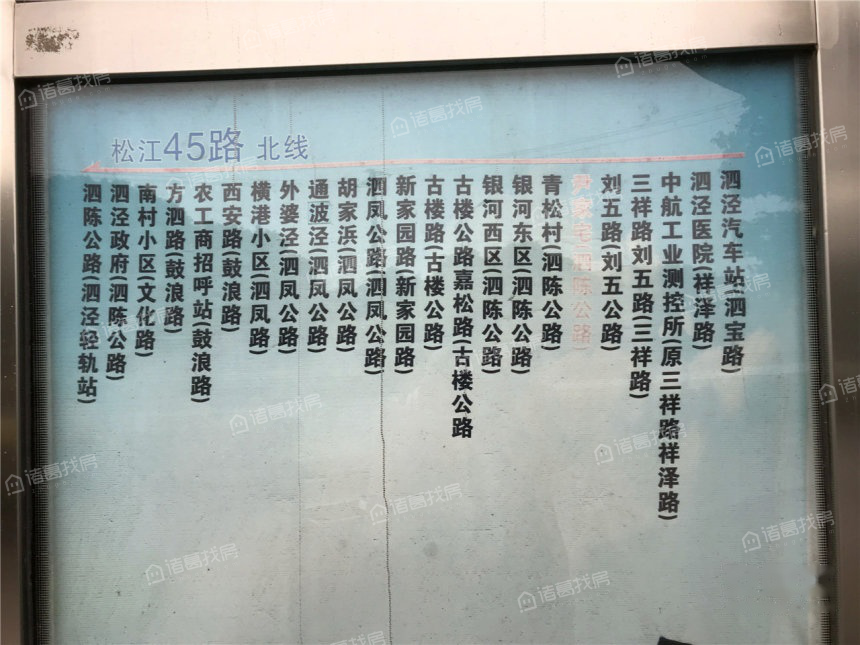 松江45路 北线
泗陈公路(泗泾轻轨站)
泗泾政府(泗陈公路)
南村小区(文化路)
方泗路(鼓浪路)
农工商招呼站(鼓浪路)
西安路(鼓浪路)
横港小区(泗凤路)
外婆泾(泗凤公路)
通波泾(泗凤公路)
胡家浜(泗凤公路)
泗凤公路(泗凤公路)
新家园路(新家园路)
古楼路(古楼公路)
古楼公路嘉松路(古楼公路)
银河西区(泗陈公路)
银河东区(泗陈公路)
青松村(泗陈公路)
尹家宅(泗陈公路)
刘五路(刘五公路)
三祥路刘五路(三祥路)
中航工业测控所(原三祥路祥泽路)
泗泾医院(祥泽路)
泗泾汽车站(泗宝路)
诸葛找房
诸葛找房
诸葛找房
诸葛找房
诸葛找房
诸葛找房
诸葛找房
诸葛找房
诸葛找房
诸葛找房
诸葛找房
诸葛找房